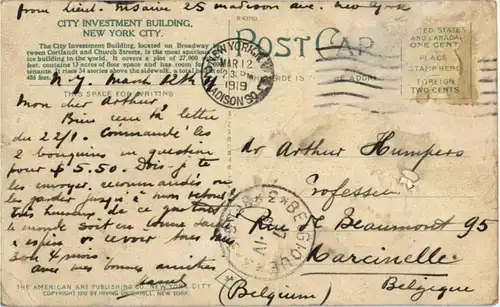 from Lieut. 25 Madison ave. New York
CITY INVESTMENT BUILDING,
NEW YORK CITY.
The City Investment Building, located on Broadway
between Cortlandt and Church Streets, is the most spacious
building in the world. It covers a plot of 27,000
feet, contains 13 acres of floor space and has room for
tenants. It rises 34 stories above the sidewalk, a total height of
486 feet
R-43760
POST CARD
THIS SIDE IS FOR THE ADDRESS
UNITED STATES
AND CANADA
ONE CENT
PLACE
STAMP HERE
FOREIGN
TWO CENTS
NEW YORK, N.Y.
MAR 12
1919
MADISON SQ.
THIS SPACE FOR WRITING
N.Y. March 12th
Mon cher Arthur,
Bien reçu ta lettre
du 22/1. Commandé les
2 bouquins en question
pour $5.50. Dois-je te
les envoyer recommandés ou
les garder jusqu'à mon retour?
Très heureux de ce que tout
le monde soit en bonne santé
4 mois
avec mes bonnes amitiés
Dr Arthur Humpers
Professeur
Rue de Beaumont 95
Marcinelle
Belgique
(Belgium)
BELGIQUE
THE AMERICAN ART PUBLISHING CO., NEW YORK CITY
COPYRIGHT BY IRVING UNDERHILL, NEW YORK